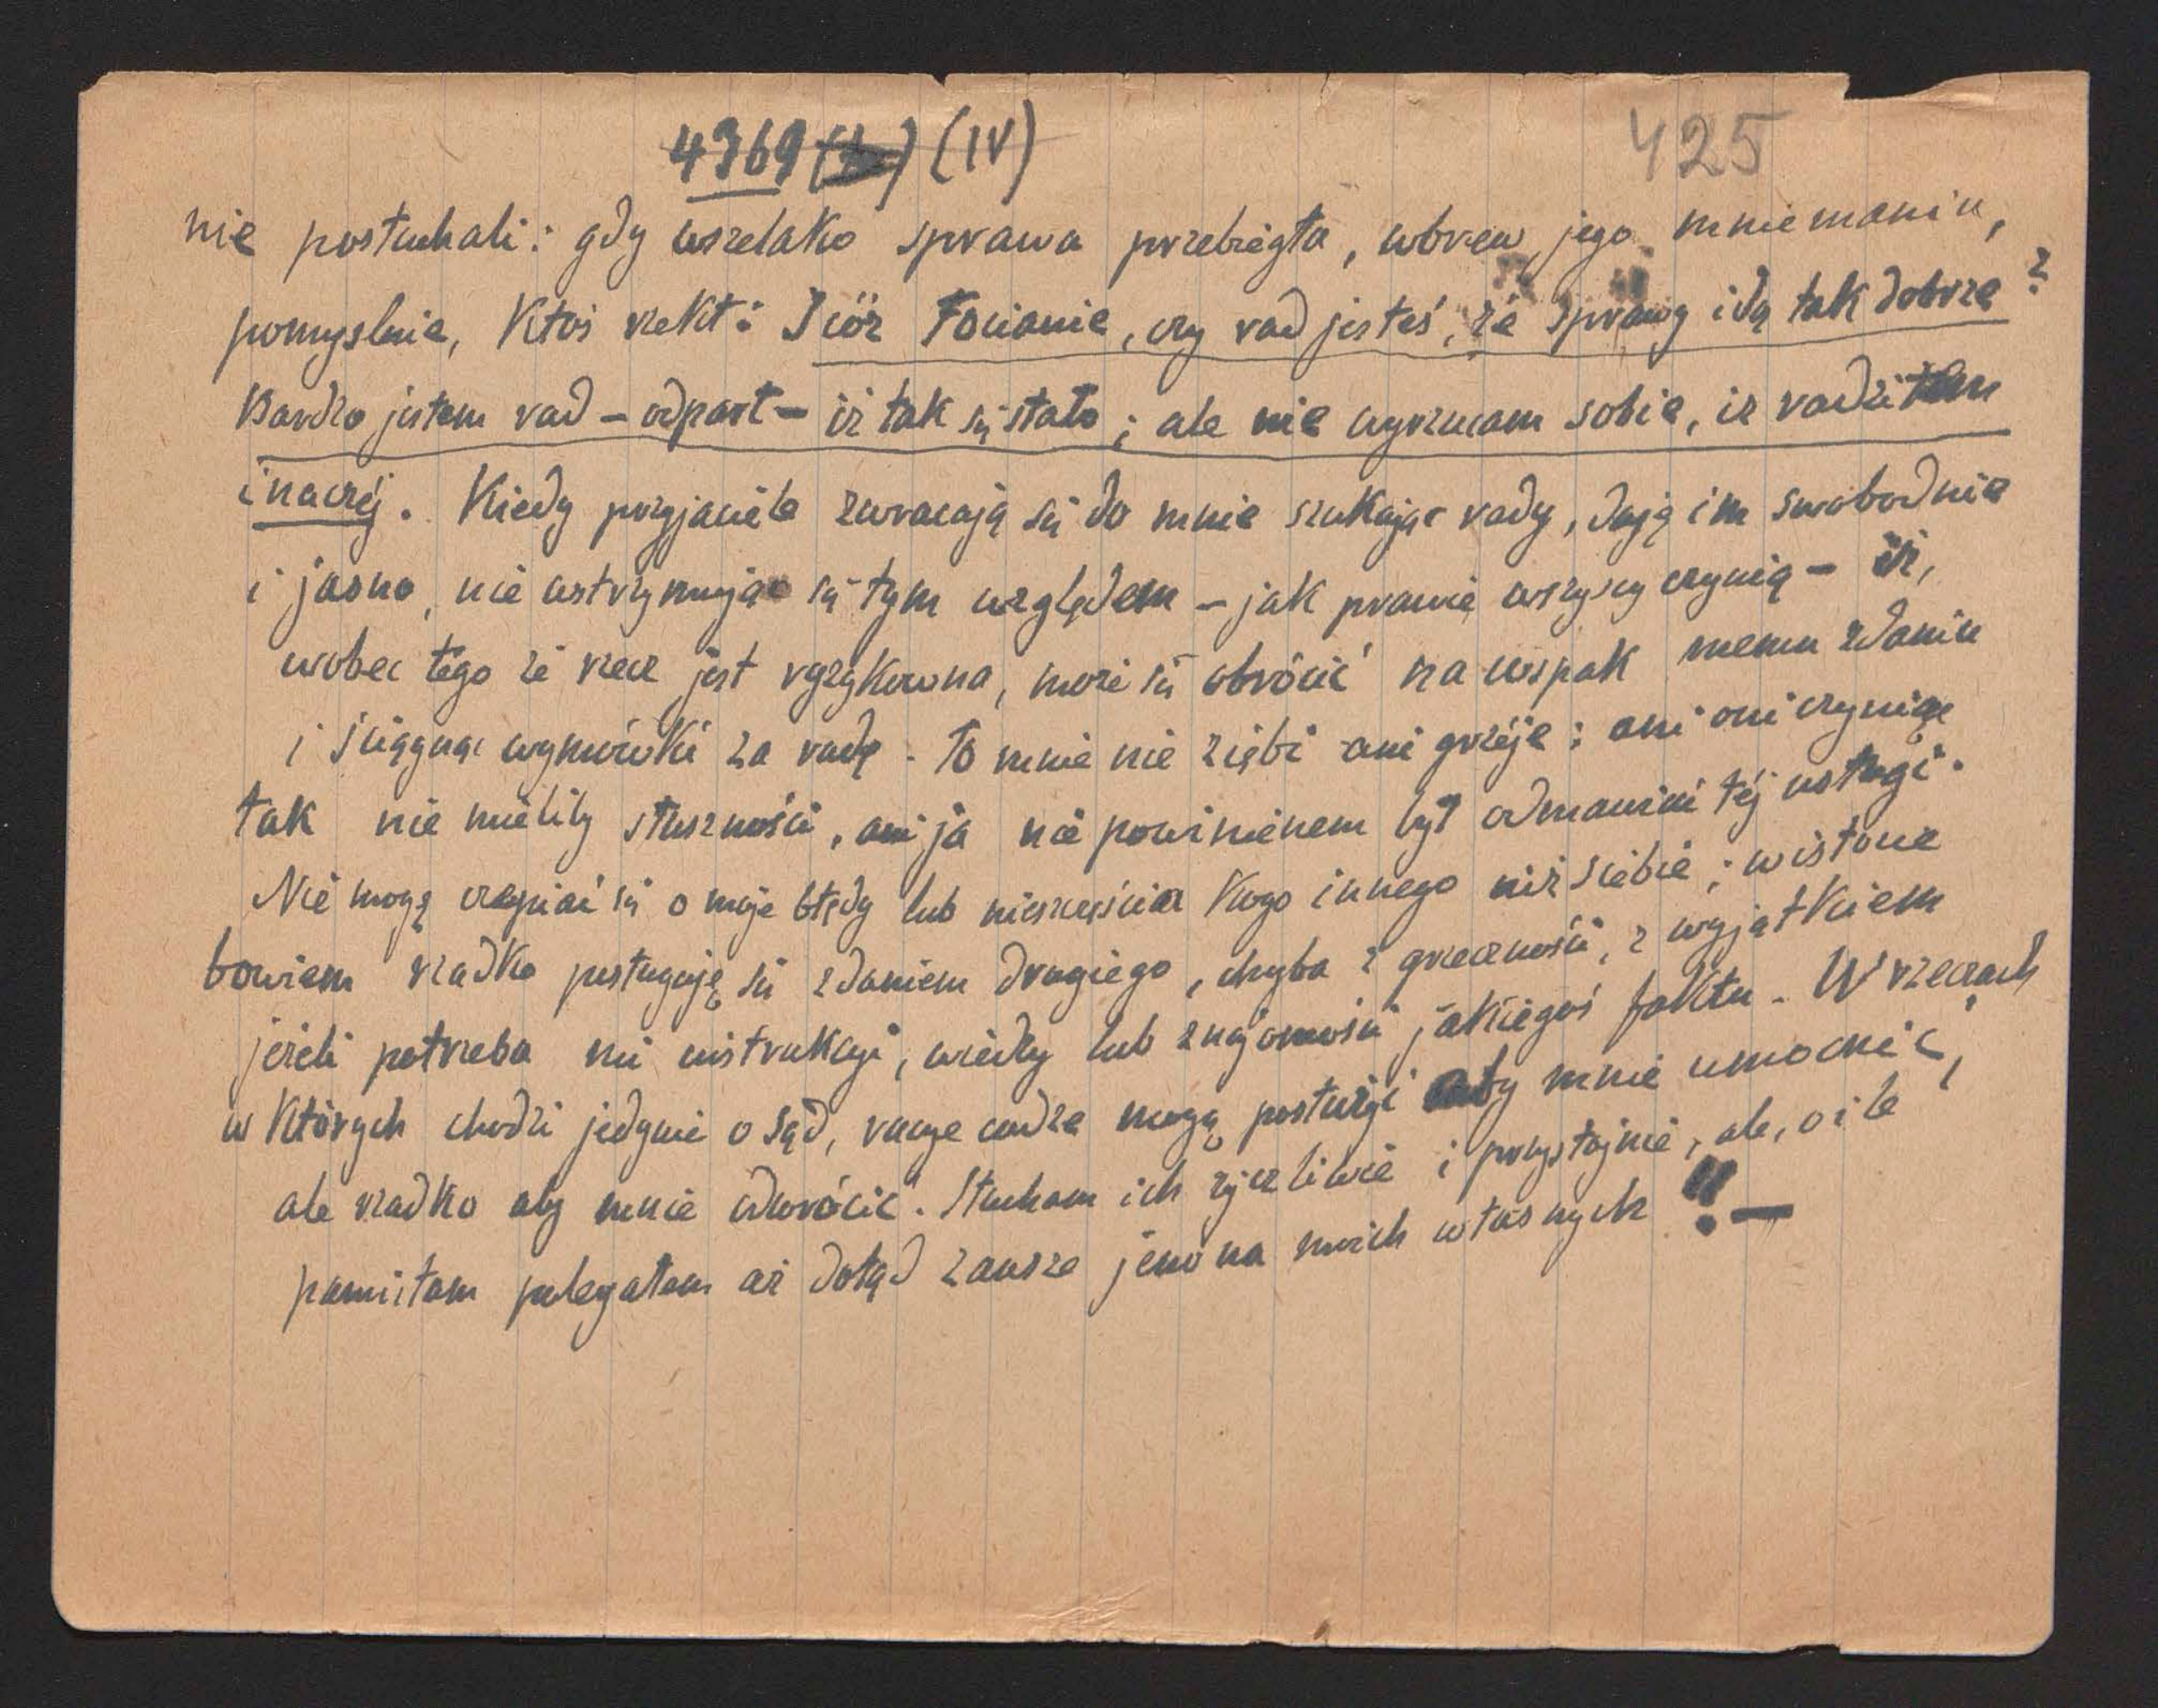 4369 (IV)
425
nie posłuchali: gdy wszelako sprawa przebiegła, wbrew jego mniemaniu,
pomyslnie, Ktoś rzekł: I cóż Focianie, czy rad jesteś, że sprawy idą tak dobrze?
Bardzo jestem rad – odparł – iż tak się stało; ale nie wyrzucam sobie, iż radziłem
inaczéj. Kiedy przyjaciele zwracają się do mnie szukając rady, daję im swobodnie
i jasno, nie wstrzymując się tym względem – jak prawie wszyscy czynią – iż,
wobec tego że rzecz jest ryzykowna, może się obrócić na wspak memu zdaniu
i ściągnąć wymówki za radę. To mnie nie ziębi ani grzéje: ani oni czyniąc
tak nie mieliby słuszności, ani ja nie powinienem był odmawiać téj usługi.
Nie mogę czepiać się o moje błędy lub nieszczęścia Kogo innego niż siebie; w istocie
bowiem rzadko posługuję się zdaniem drugiego, chyba z grzeczności, z wyjątkiem
jeżeli potrzeba mi instrukcyi, wiedzy lub znajomości jakiegoś faktu. W rzeczach
w Których chodzi jedynie o sąd, racye cudze mogą posłużyć aby mnie umocnić,
ale rzadko aby mnie odwrócić. Słucham ich życzliwie i przystojnie, ale, o ile
pamiętam polegałem aż dotąd zawsze jeno na moich własnych !! –